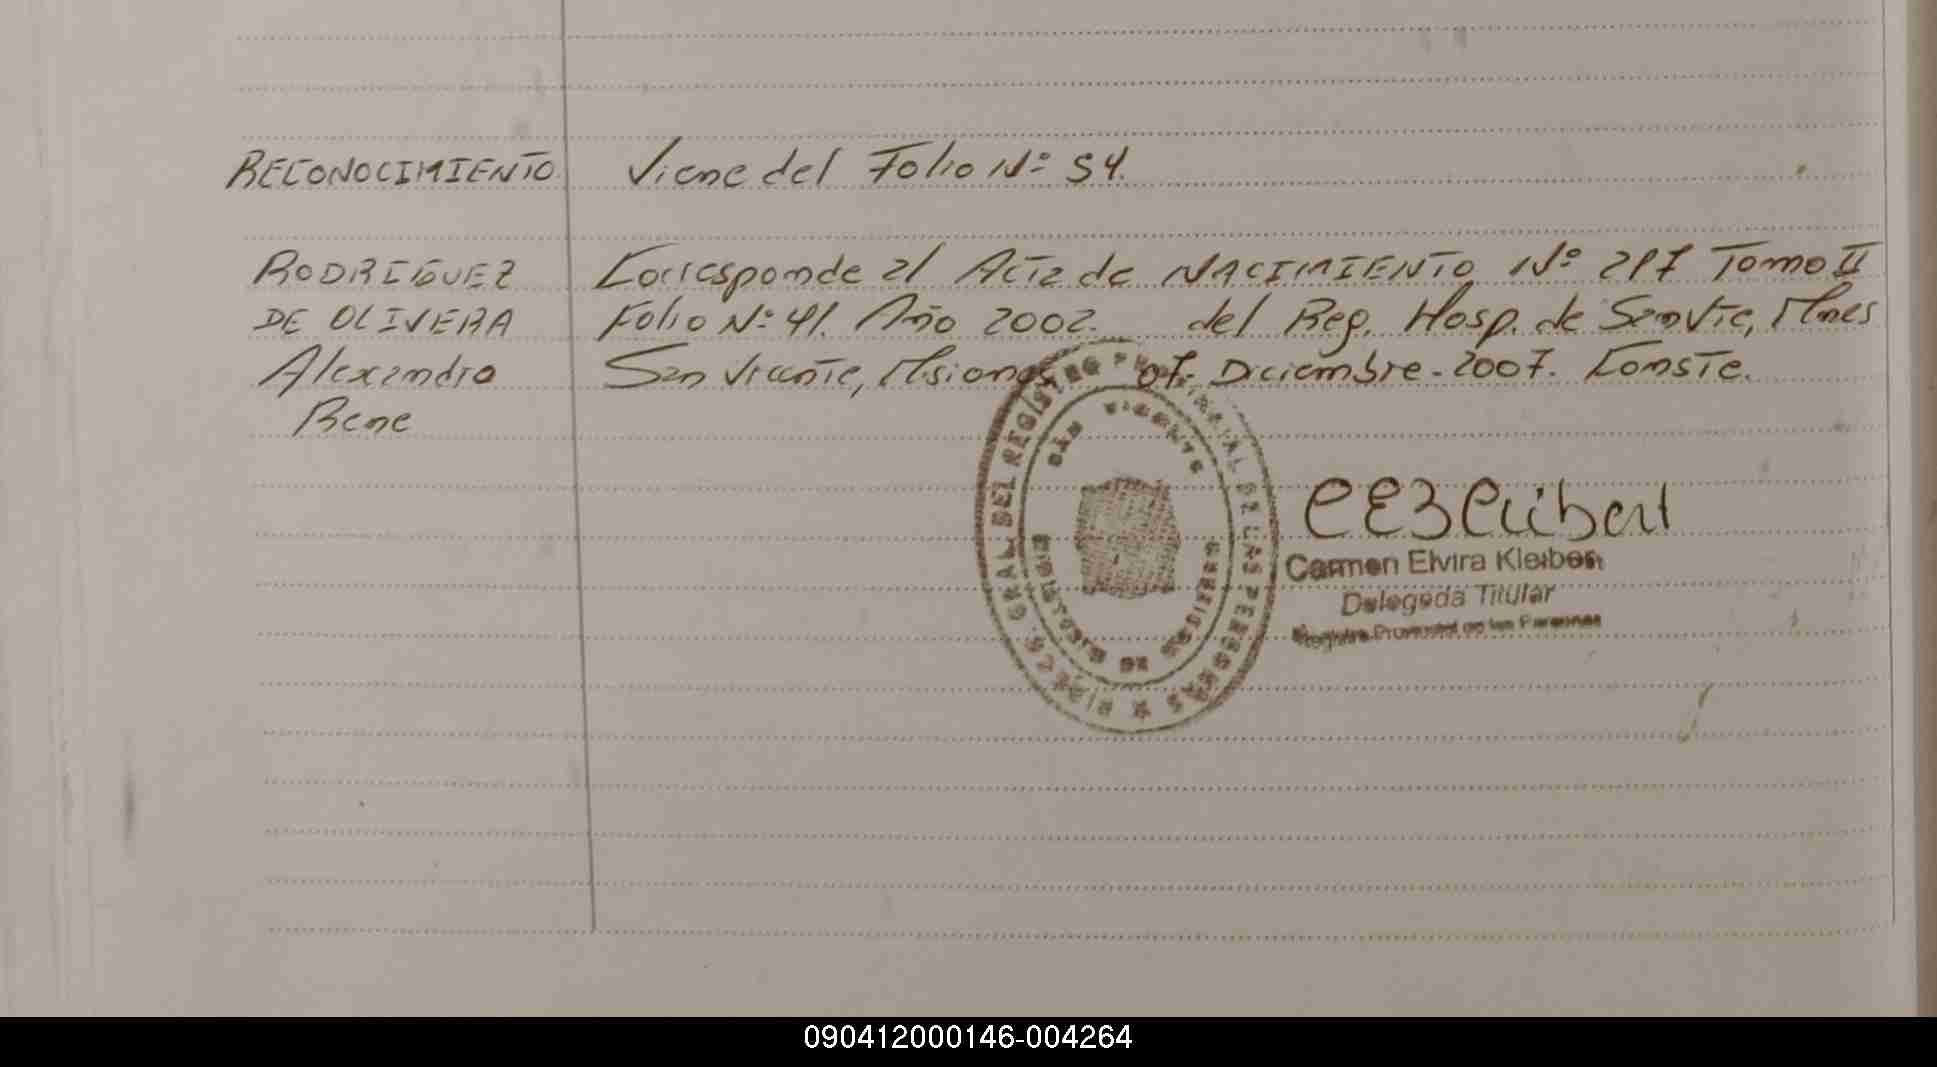 RECONOCIMIENTO Viene del Folio Nº 54.
RODRIGUEZ Corresponde al Acta de NACIMIENTO Nº 297 Tomo II
DE OLIVERA Folio Nº 41. Año 2002. del Reg. Hosp. de San Vte, Mnes
Alexandro San Vicente, Misiones 07. Diciembre - 2007. Conste.
Rene
GRAL. DEL REGISTRO PROVINCIAL DE LAS PERSONAS
SAN VICENTE
Carmen Elvira Kleibert
Delegada Titular
Registro Provincial de las Personas
090412000146-004264